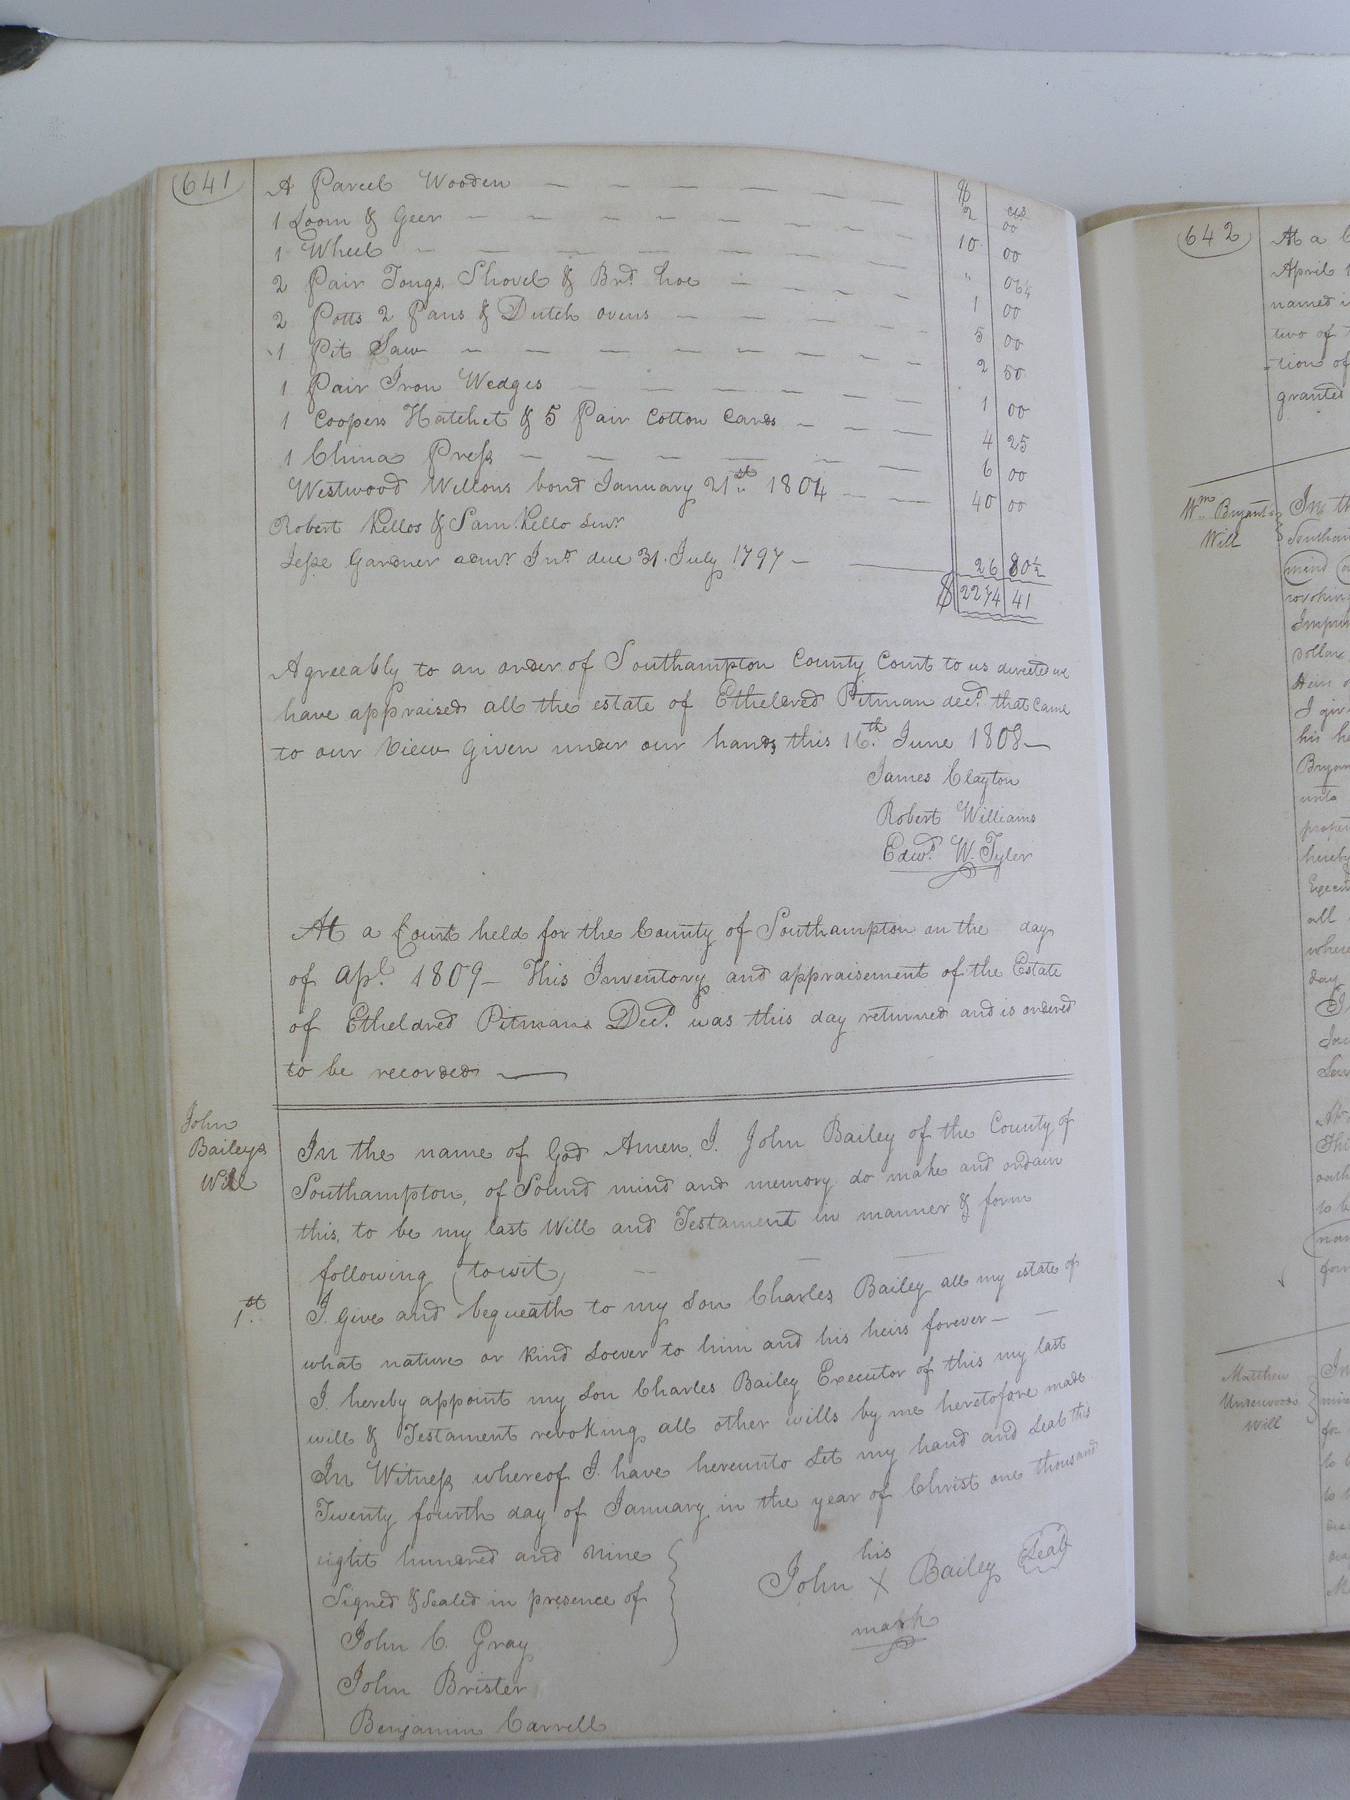 641
A Parcel Wooden — — — — — — $ 2 cts 00
1 Loom & Geer — — — — — — — 10 00
1 Wheel — — — — — — — " 06¼
2 Pair Tongs, Shovel & Brd. hoe — — — — 1 00
2 Potts 2 Pans & Dutch ovens — — — — — 5 00
1 Pit Saw — — — — — — — 2 50
1 Pair Iron Wedges — — — — — — 1 00
1 Coopers Hatchet & 5 Pair Cotton Cards — — — 4 25
1 China Press — — — — — — 6 00
Westwood Wellons bond January 21st. 1804 — — 40 00
Robert Kellos & Sam. Kello
Jesse Gardner due 31. July 1797 — — 26 80½
$ 2274 41
Agreeably to an order of Southampton County Court to us directed we
have appraised all the estate of Etheldred Pitman decd. that came
to our View Given under our hands this 16th. June 1808 —
James Clayton
Robert Williams
Edwd. W. Tyler
At a Court held for the County of Southampton on the day
of Apl. 1809 — This Inventory and appraisement of the Estate
of Etheldred Pitmans Decd. was this day returned and is ordered
to be recorded —
John
Baileys
Will
In the name of God Amen, I. John Bailey of the County of
Southampton, of Sound mind and memory do make and ordain
this, to be my last Will and Testament in manner & form
following (to wit)
1st. I. Give and bequeath to my son Charles Bailey all my estate of
what nature or kind soever to him and his heirs forever — —
I. hereby appoint my son Charles Bailey Executor of this my last
will & Testament revoking all other wills by me heretofore made
In Witness whereof I. have hereunto set my hand and seal this
Twenty fourth day of January in the year of Christ one thousand
eight hundred and nine
Signed & Sealed in presence of
John C. Gray
John Brister
Benjamin Carrell
his
John X Bailey Seal
mark
642
At a
April
named
two of
tion of
granted
Wm. Bryants
Will
In th
Southam
mind
Matthew
Underwoods
Will